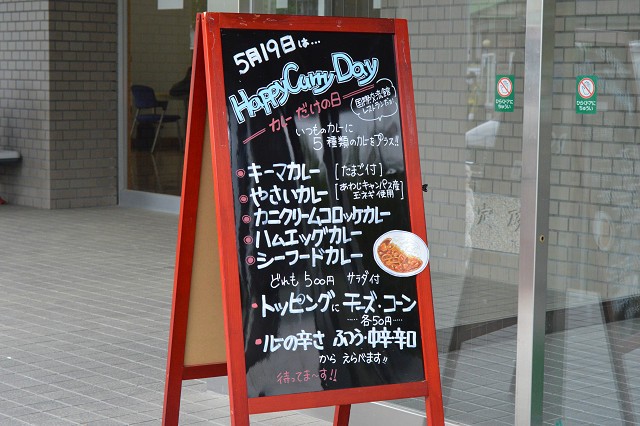 5月19日は...
Happy Curry Day
カレーだけの日
国際交流会館
レストランだよ!
いつものカレーに
5種類のカレーをプラス!!
キーマカレー [たまご付]
やさいカレー [あわじキャンパス産
玉ネギ使用]
カニクリームコロッケカレー
ハムエッグカレー
シーフードカレー
どれも500円 サラダ付
トッピングに チーズ・コーン
各50円
ルーの辛さ ふつう・中辛・辛口
から えらべます!!
待ってま〜す!!